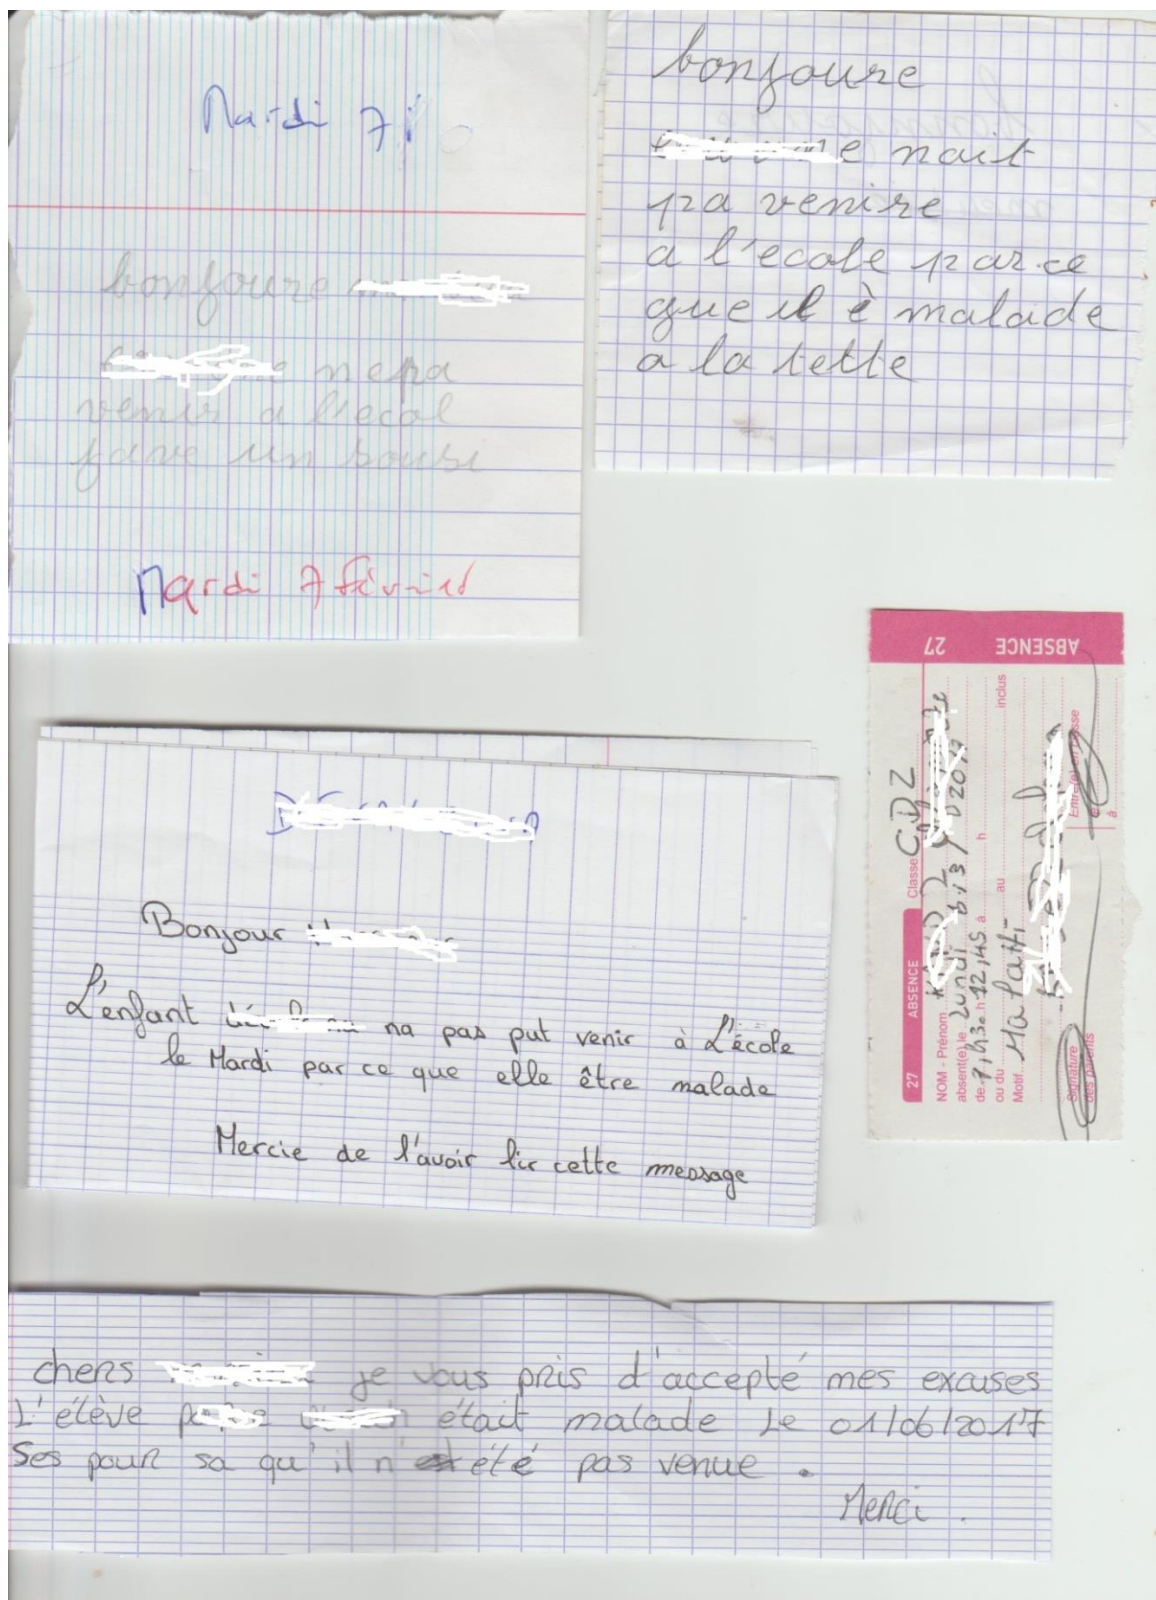 Mardi 7
bonjoure
nepa
venir a l'ecol
Mardi 7 février
bonjoure
e nait
pa venire
a l'ecole par ce
que il è malade
a la tette
ABSENCE 27
27 ABSENCE Classe CDZ
NOM - Prénom
absent(e) le Lundi
de 7,h30 h 12,45 à h
ou du au inclus
Motif
Signature
des parents
Entré(e) en classe
à
Bonjour
L'enfant na pas put venir à L'école
le Mardi par ce que elle être malade
Mercie de l'avoir lir cette message
chers je vous pris d'accepté mes excuses
L'élève était malade Le 01/06/2017
Ses pour sa qu'il n' été pas venue .
Merci .